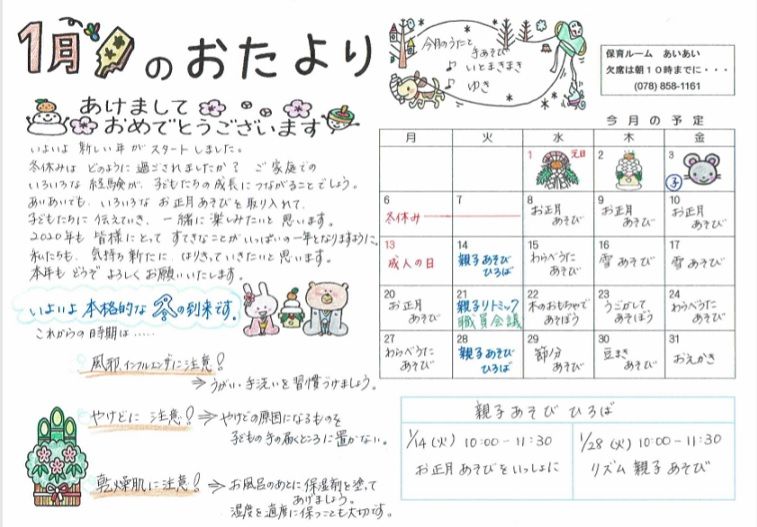 1月のおたより
今月のうたと
手あそび
♪ いとまきまき
♪ ゆき
保育ルーム あいあい
欠席は朝10時までに・・・
(078) 858-1161
あけまして
おめでとうございます
いよいよ 新しい年が スタートしました。
冬休みは どのように 過ごされましたか? ご家庭での
いろいろな 経験が、子どもたちの 成長に つながることでしょう。
あいあいでも、いろいろな お正月あそびを 取り入れて、
子どもたちに 伝えていき、一緒に 楽しみたいと 思います。
2020年も 皆様にとって すてきなことがいっぱいの一年となりますように。
私たちも、気持ち新たに、はりきっていきたいと思います。
本年も どうぞ よろしく お願いいたします。
いよいよ 本格的な 冬の到来です。
これからの 時期は……
風邪、インフルエンザに注意!
⇒ うがい・手洗いを 習慣づけましょう。
やけどに 注意!
⇒ やけどの原因になるものを
子どもの 手の届くところに 置かない。
乾燥肌に注意!
⇒ お風呂のあとに 保湿剤を塗って
あげましょう。
湿度を 適度に 保つことも大切です。
今月の予定
月 火 水 木 金
1 元旦 2 3 子
6 冬休み 7 8 お正月あそび 9 お正月あそび 10 お正月あそび
13 成人の日 14 親子あそびひろば 15 わらべうたあそび 16 雪あそび 17 雪あそび
20 お正月あそび 21 親子リトミック 職員会議 22 木のおもちゃであそぼう 23 うごかしてあそぼう 24 わらべうたあそび
27 わらべうたあそび 28 親子あそびひろば 29 節分あそび 30 豆まきあそび 31 おえかき
親子あそび ひろば
1/14(火) 10:00-11:30
お正月あそびをいっしょに
1/28(火) 10:00-11:30
リズム 親子あそび